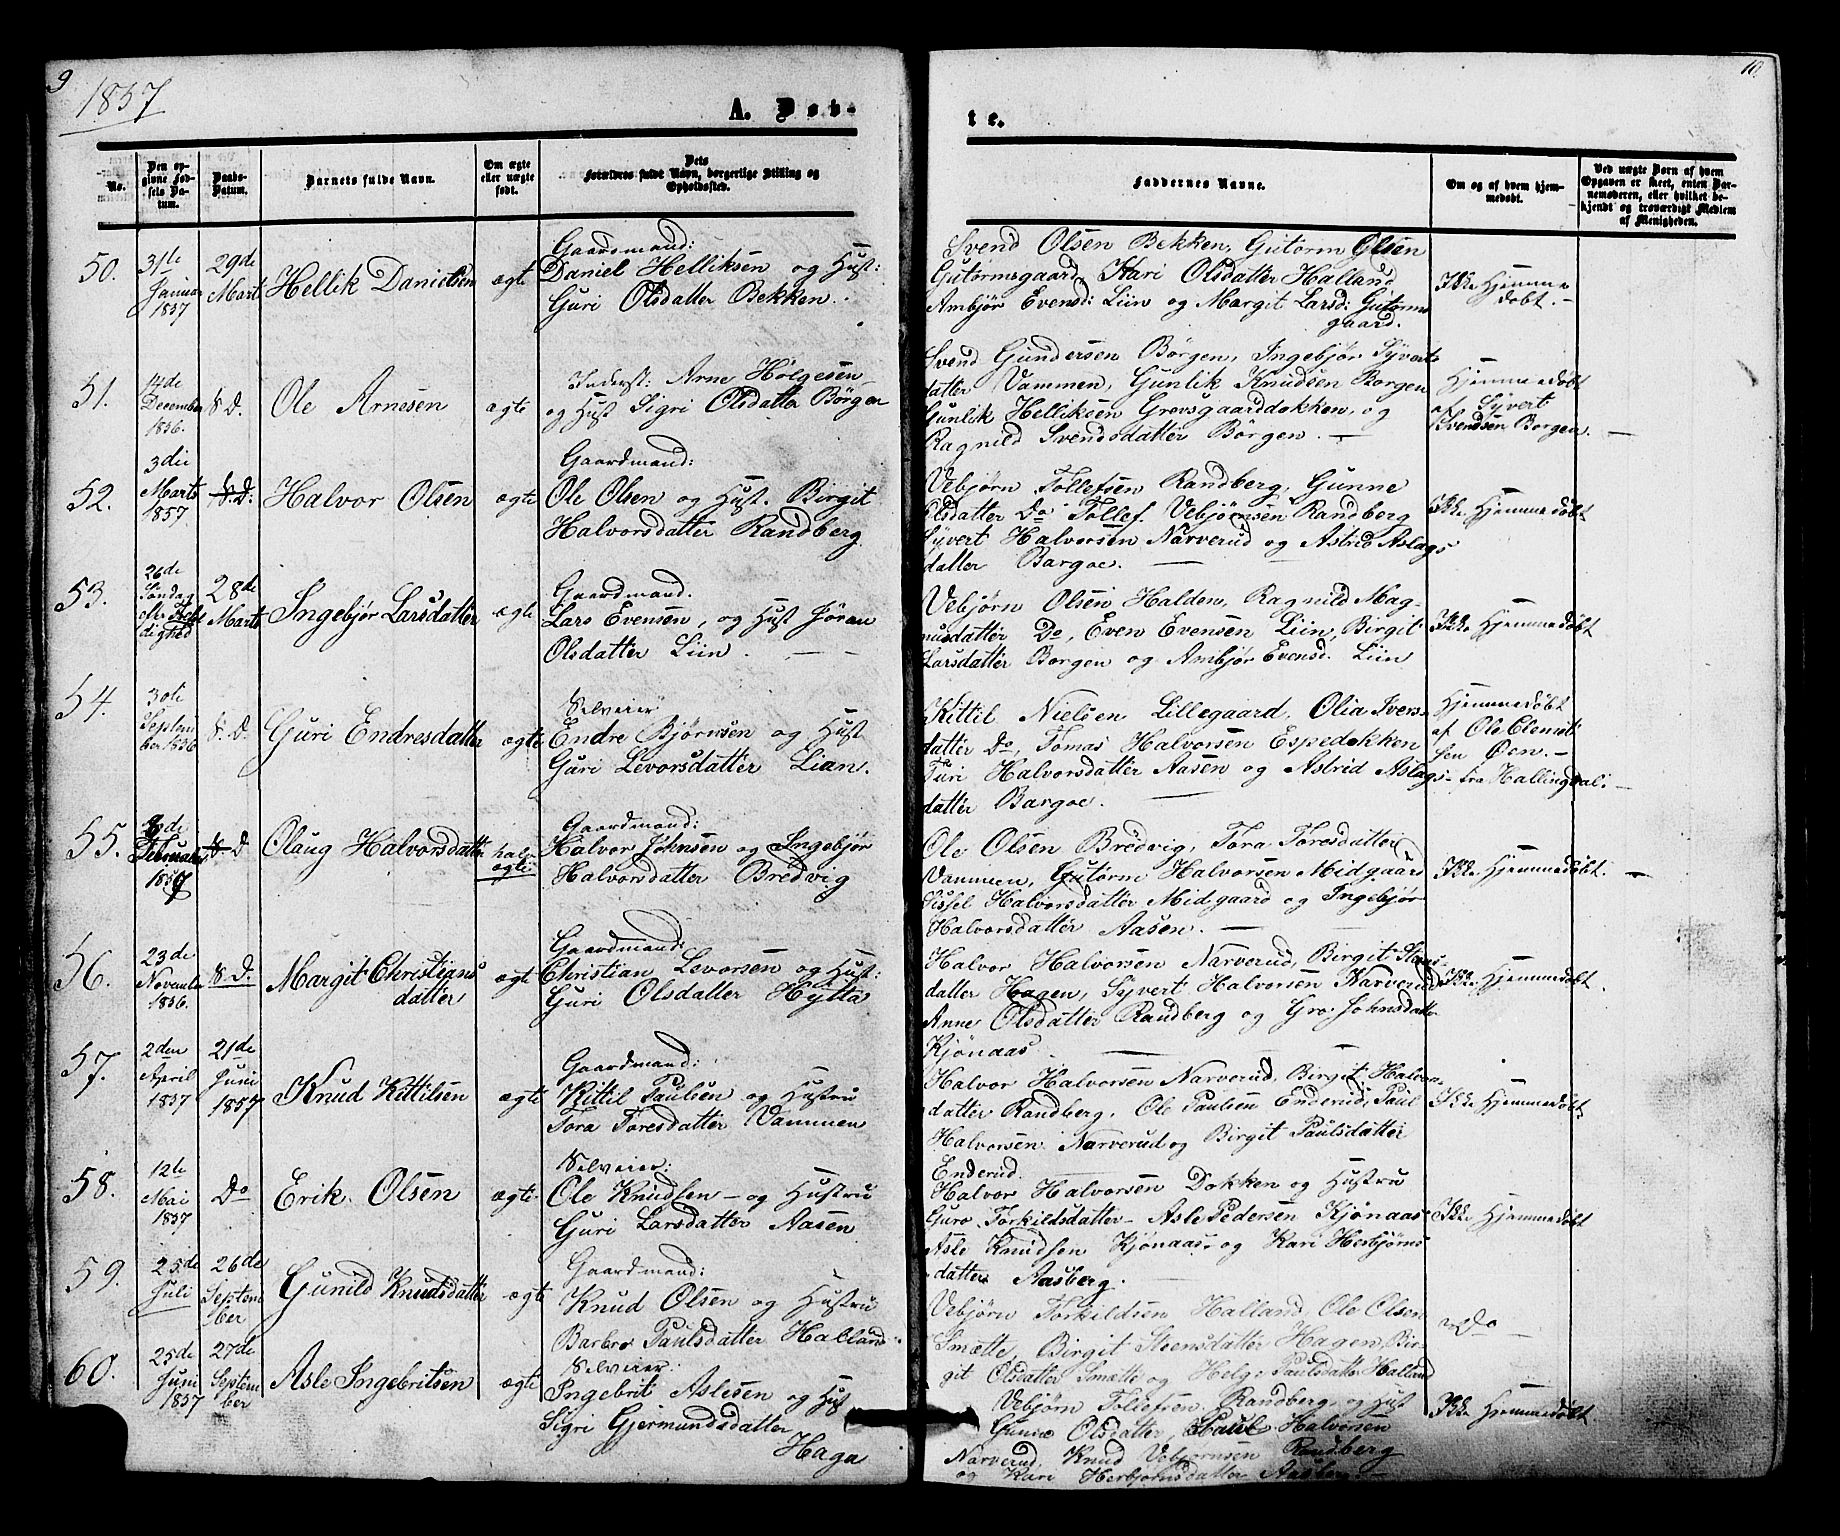 9
1857
A. Døb-
No.
Den op-
givne Fød-
sels Da-
tum.
Daabs-
Datum.
Barnets fulde Navn.
Om ægte
eller uægte
født.
Dets
Forældres fulde Navn, borgerlige Stilling og
Opholdssted.
50.
31te
Januar
1857
29de
Mart
Hellik Danielsen
ægte
Gaardmand:
Daniel Helliksen og Hust:
Guri Olsdatter Bekken.
51.
14de
December
1856.
S. D.
Ole Arnesen
ægte
Inderst: Arne Holgesen
og Hust Sigri Olsdatter Børgen
52.
3die
Marts
1857
S. D.
Halvor Olsen
ægte
Gaardmand:
Ole Olsen og Hust. Birgit
Halvorsdatter Randberg
53.
26de
Søndag
efter
28de
Marts
Ingebjør Larsdatter
ægte
Gaardmand.
Lars Evensen, og Hust Jøran
Olsdatter Liin.
54.
30te
Septem
ber 1856
S. D.
Guri Endresdatter
ægte
Selveier
Endre Bjørnsen og Hust
Guri Levorsdatter Lian.
55.
Februar
1857
S. D
Olaug Halvorsdatter
ægte
Gaardmand:
Halvor Johnsen og Ingebjør
Halvorsdatter Brødvig
56.
23de
Novembr
1856.
S. D.
Margit Christians
datter
ægte
Gaardmand:
Christian Levorsen og Hust:
Guri Olsdatter Hytta
57.
2den
April
1857
21de
Juni
1857
Knud Kittilsen
ægte
Gaardmand:
Kittil Paulsen og Hustru
Tora Toresdatter Vammen
58.
12te
Mai
1857
Do
Erik Olsen
ægte
Selveier:
Ole Knudsen og Hustru
Guri Larsdatter Aasen
59.
25de
Juli
26de
Septem
ber
Gunild Knudsdatter
ægte
Gaardmand:
Knud Olsen og Hustru
Barbro Paulsdatter Halland
60.
25de
Juni
1857
27de
Septem
ber
Asle Ingebritsen
ægte
Selveier:
Ingebrit Aslesen og Hust
Sigri Gjermundsdatter
Haga
10.
te.
Faddernes Navne.
Om og af hvem hjem-
medøbt.
Ved uægte Børn af hvem
Opgaven er skeet, enten Bar-
nemoderen, eller hvilket be-
kjendt og troværdigt Medlem
af Menigheden.
Svend Olsen Bekken, Gutorm Olsen
Gutormsgaard, Kari Olsdatter Halland
Ambjør Evensd: Liin og Margit Larsd: Gutorms
gaard.
Ikke Hjemme
døbt.
Svend Gundersen Børgen, Ingebjør Syverts
datter Vammen, Gunlik Knudsen Borgen
Gunlik Helliksen Grevsgaarddokken, og
Ragnild Svendsdatter Børgen.
Hjemmedøbt
af Syvert
Svendsen Borgen.
Vebjørn Tollefsen Randberg, Gunne
Olsdatter Do Tollef. Vebjørnsen Randberg
Syvert Halvorsen Narverud og Astrid Aslags
datter Bargoe.
Ikke Hjemmedøbt
Vebjørn Olsen Halden, Ragnild Mag-
nusdatter Do, Even Evensen Liin, Birgit
Larsdatter Borgen og Ambjør Evensd. Liin
Ikke Hjemmedøbt
Kittil Nielsen Lillegaard, Olia Ivers-
datter Do, Tomas Halvorsen Espedokken
Turi Halvorsdatter Aasen og Astrid Aslags-
datter Bargoe.
Hjemmedøbt
af Ole Clemet
sen Øen.
fra Hallingdal.
Ole Olsen Brødvig, Tora Toresdatter
Vammen, Gutorm Halvorsen Midgaard
Sissel Halvorsdatter Midgaard og Ingebjør
Halvorsdatter Aasen.
Ikke Hjemmedøbt.
Halvor Halvorsen Narverud, Birgit
datter Hagen, Syvert Halvorsen Narverud
Anne Olsdatter Randberg og Gro Johnsdatter
Kjønaas
Ikke Hjemmedøbt.
Halvor Halvorsen Narverud, Birgit Halvors-
datter Randberg, Ole Paulsen Enderud, Paul
Halvorsen Narverud og Birgit Paulsdatter
Enderud.
Ikke Hjemmedøbt
Halvor Halvorsen Dokken og Hustru
Guro Torkildsdatter, Asle Pedersen Kjønaas
Asle Knudsen Kjønaas, og Kari Herbjørns
datter Aasberg.
Ikke Hjemmedøbt
Vebjørn Torkildsen Halland, Ole Olsen
Smætte, Birgit Steensdatter Hagen, Bir-
git Olsdatter Smætte og Helge Paulsdatter Halland
Do
Vebjørn Tollefsen Randberg, og Hust
Gunne Olsdatter, Paul Halvorsen
Narverud, Knud Vebjørnsen Randberg
og Kari Herbjørnsdatter Aasberg
Ikke Hjemmedøbt